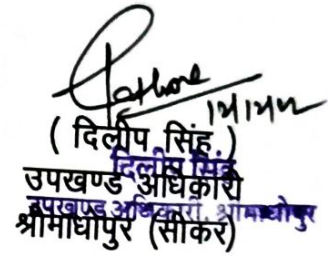 Rathore
( दिलीप सिंह )
दिलीप सिंह
उपखण्ड अधिकारी
उपखण्ड अधिकारी, श्रीमाधोपुर
श्रीमाधोपुर (सीकर)